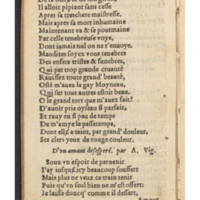 Il alloit pipiant sans cesse
Apres sa tranchee maistresse.
Mais apres sa mort inhumaine
Maintenant va & se pourmaine
Par celle tenebreuse voye,
Dont iamais nul on ne r'enuoye.
Maudites soyez vous tenebres
Des enfers tristes & funebres,
Qui par trop grande cruauté
Rauissez toute grand' beauté,
Osté m'auez le gay Moyneau,
Qui sur tout autres estoit beau.
O le grand tort que m'auez fait!
D'auoir pris oyseau si parfait,
Et rauy en si peu de temps
De m'amye le passetemps,
Dont elle a teint, par grand' douleur,
Ses clers yeux de rouge couleur.
D'vn amant desesperé. par A. Vig.
Sous vn espoir de paruenir
I'ay iusqu'icy beaucoup souffert
Mais plus ne veux ce train tenir
Puis qu'vn seul bien ne m'est offert: